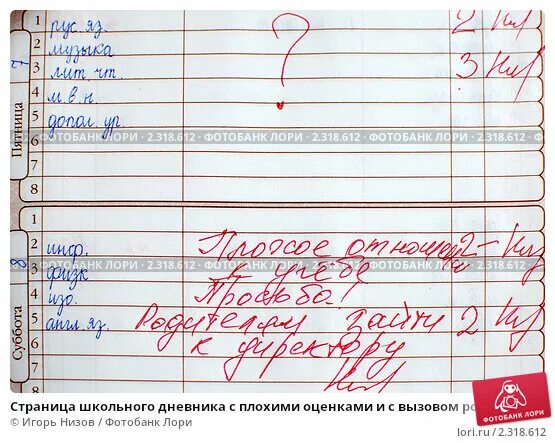 1 рус. яз. 2
2 музыка ?
3 лит. чт. 3
4 м.в.н.
5 допол. ур.
6
7
8
Пятница 7
© ФОТОБАНК ЛОРИ - 2.318.612 - ФОТОБАНК ЛОРИ - 2.318.612 - ФОТОБАНК ЛОРИ - 2.318.612
1
2 инф. Плохое отношен 2-
© ФОТОБАНК ЛОРИ - 2.318.612 - ФОТОБАНК ЛОРИ - 2.318.612 - ФОТОБАНК ЛОРИ - 2.318.612
3 физк к учебе
4 изо. Просьба!
5 англ. яз. Родителям зайти 2
6 к директору
7
8
Суббота 8
ФОТОБАНК ЛОРИ
lori.ru
Страница школьного дневника с плохими оценками и с вызовом ро
© Игорь Низов / Фотобанк Лори
lori.ru/2.318.612